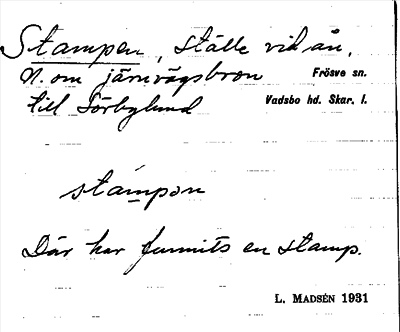 Stampen, ställe vid ån,
N. om järnvägsbron Frösve sn.
till Sörbylund Vadsbo hd. Skar. l.
stámpən
Där har funnits en stamp.
L. MADSÉN 1931